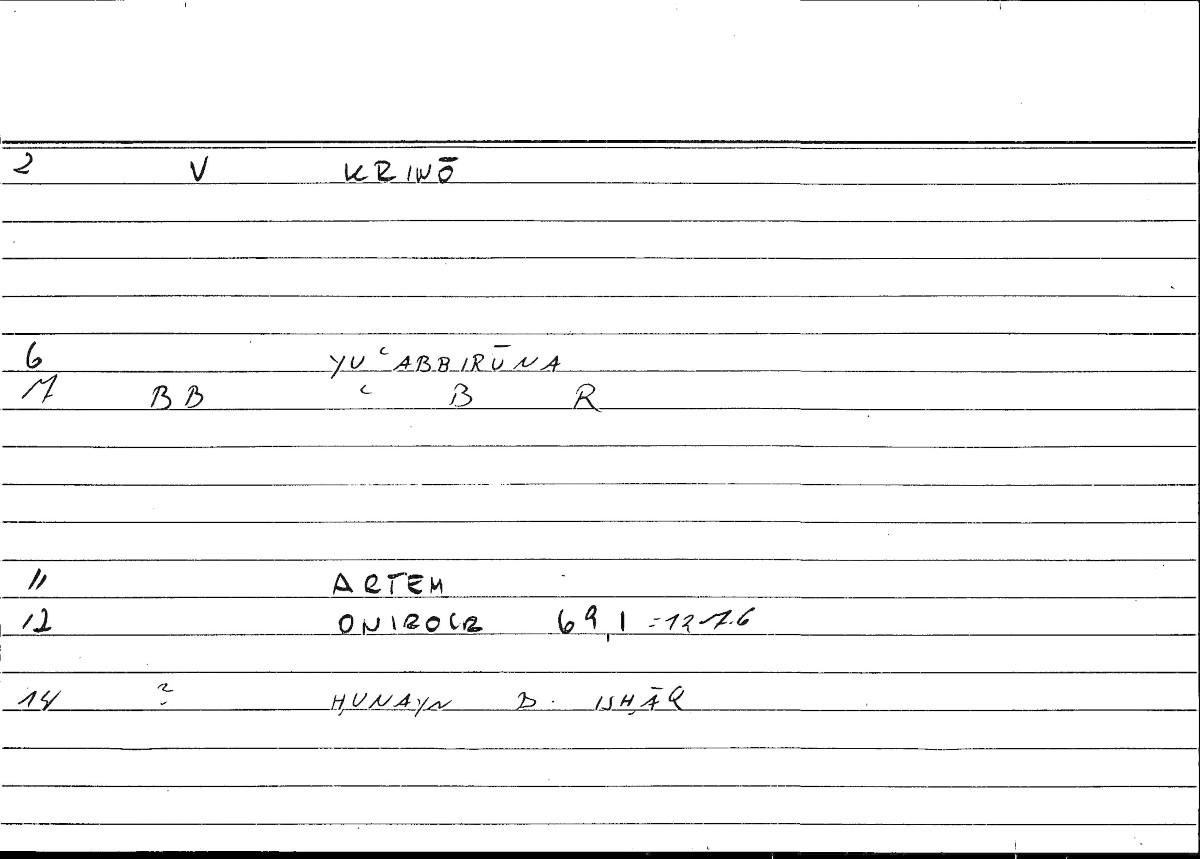 2 V KRINŌ
6 YUʿABBIRŪNA
7 BB ʿ B R
11 ARTEM
12 ONIROCR 69,1 =12,7.6
14 ? ḤUNAYN B. ISḤĀQ